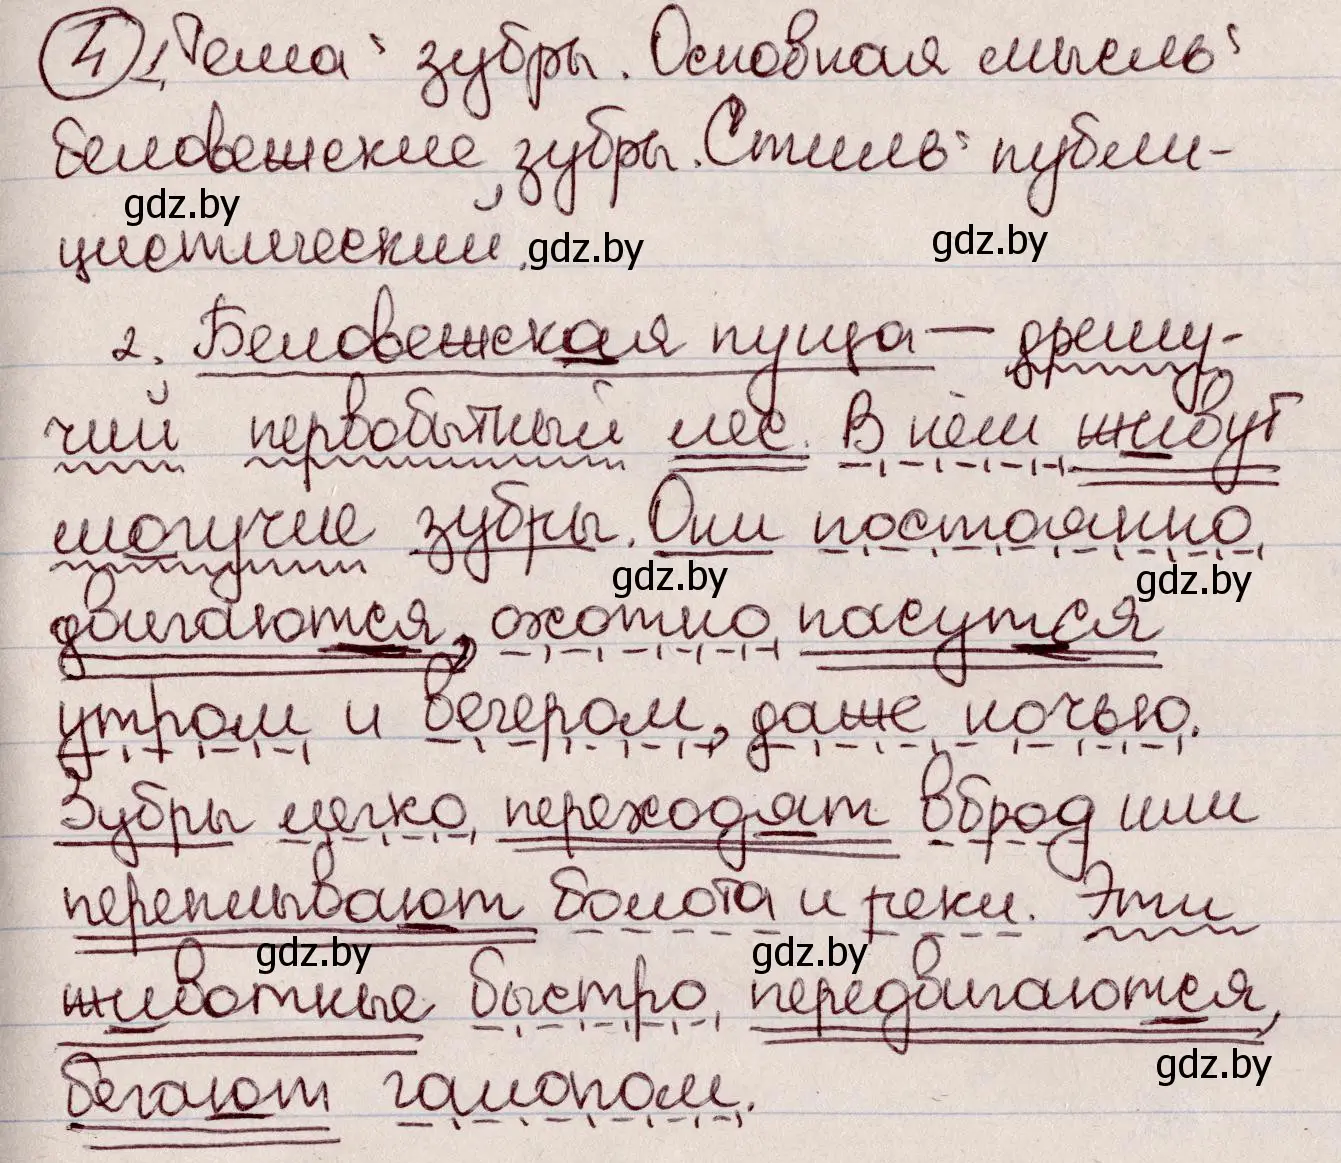 4 1. Тема: зубры. Основная мысль:
беловежские зубры. Стиль: публи-
цистический.
gdz.by
gdz.by
gdz.by
2. Беловежская пуща — дрему-
чий первобытный лес. В нём живут
могучие зубры. Они постоянно
gdz.by
gdz.by
двигаются, охотно пасутся
утром и вечером, даже ночью.
Зубры легко переходят вброд или
переплывают болота и реки. Эти
gdz.by
gdz.by
животные быстро передвигаются,
gdz.by
бегают галопом.